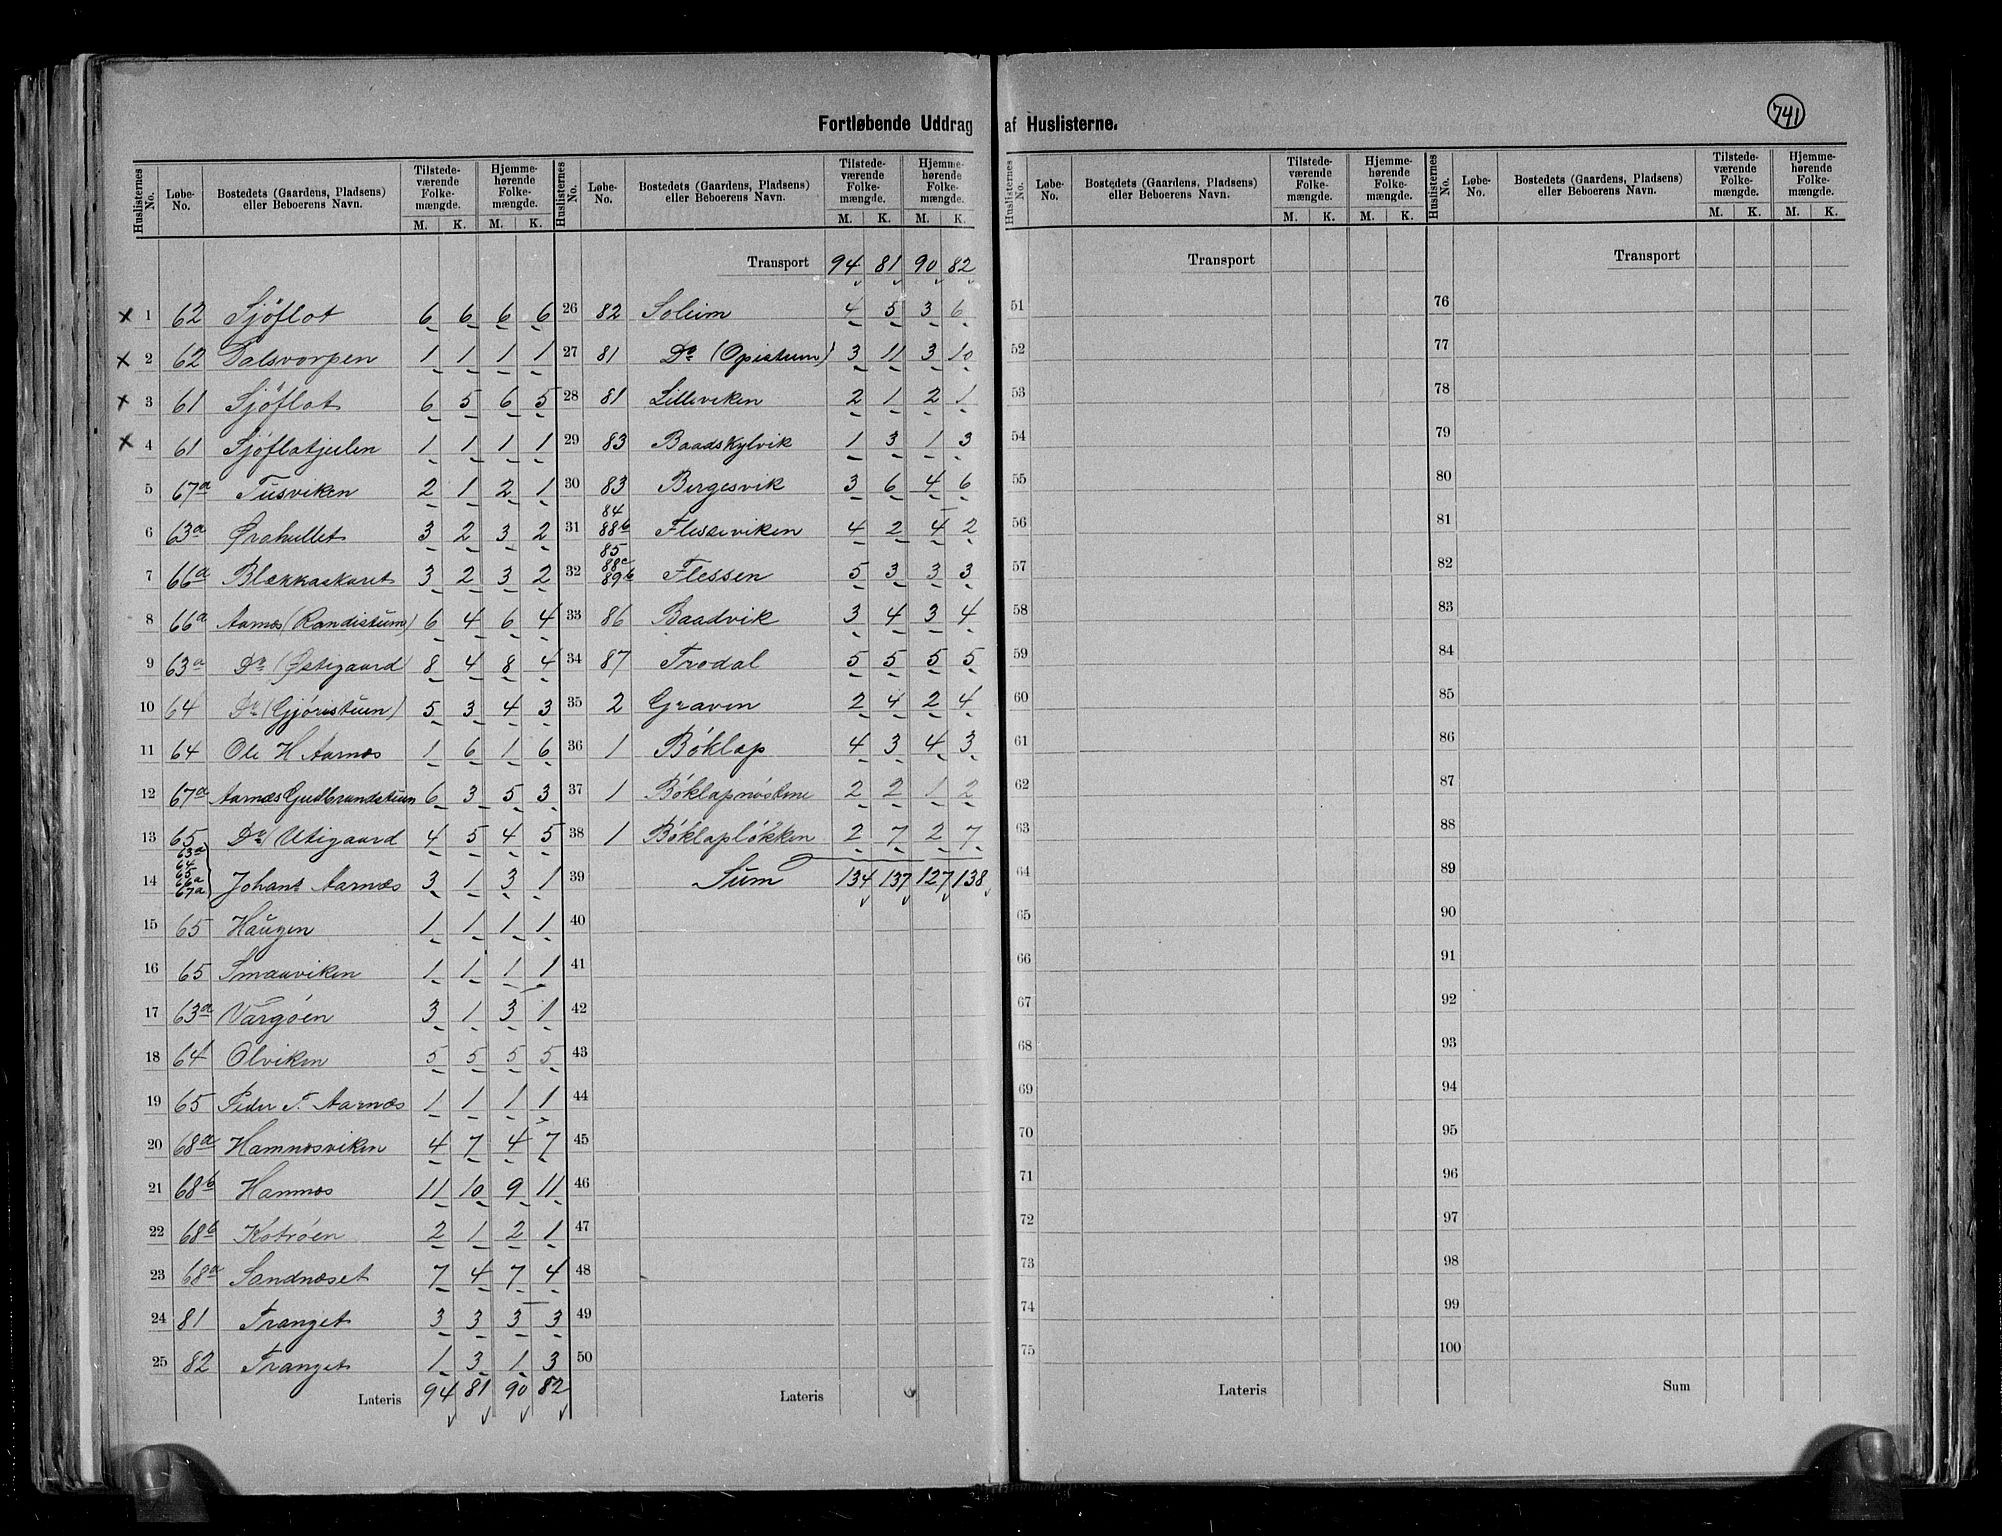 741
Fortløbende Uddrag af Huslisterne.
Huslisternes No. | Løbe-No. | Bostedets (Gaardens, Pladsens) eller Beboerens Navn. | Tilstedeværende Folkemængde. M. K. | Hjemmehørende Folkemængde. M. K.
x 1 62 Sjöflot 6 6 6 6
x 2 62 Dalsvorpen 1 1 1 1
x 3 61 Sjöflot 6 5 6 5
x 4 61 Sjöflotjeilen 1 1 1 1
5 67a Tusviken 2 1 2 1
6 63a Ørahullet 3 2 3 2
7 66a Blækkaskaret 3 2 3 2
8 66a Aarnæs (Randistuen) 6 4 6 4
9 63a Do (Østigaard) 8 4 8 4
10 64 Do (Gjöristuen) 5 3 4 3
11 64 Ole H Aarnæs 1 6 1 6
12 67a Aarnæs Gudbrandstuen 6 3 5 3
13 65 Do (Utigaard 4 5 4 5
14 63a 64 65 66a 67a Johans Aarnæs 3 1 3 1
15 65 Haugen 1 1 1 1
16 65 Smaaviken 1 1 1 1
17 63a Vargöen 3 1 3 1
18 64 Olviken 5 5 5 5
19 65 Peder T. Aarnæs 1 1 1 1
20 68a Hamnæsviken 4 7 4 7
21 68b Hamnæs 11 10 9 11
22 68b Kotröen 2 1 2 1
23 68a Sandnæset 7 4 7 4
24 81 Tranget 3 3 3 3
25 82 Tranget 1 3 1 3
Lateris 94 81 90 82
Huslisternes No. | Løbe-No. | Bostedets (Gaardens, Pladsens) eller Beboerens Navn. | Tilstedeværende Folkemængde. M. K. | Hjemmehørende Folkemængde. M. K.
Transport 94 81 90 82
26 82 Soleim 4 5 3 6
27 81 Do (Opistuen) 3 11 3 10
28 81 Lilleviken 2 1 2 1
29 83 Baadskylvik 1 3 1 3
30 83 Bergesvik 3 6 4 6
31 84 88b Flesseviken 4 2 4 2
32 85 88c 89b Flessen 5 3 3 3
33 86 Baadvik 3 4 3 4
34 87 Trodal 5 5 5 5
35 2 Graven 2 4 2 4
36 1 Böklep 4 3 4 3
37 1 Böklapnöstene 2 2 1 2
38 1 Böklaplökken 2 7 2 7
39 Sum 134 137 127 138
40
41
42
43
44
45
46
47
48
49
50
Lateris
Huslisternes No. | Løbe-No. | Bostedets (Gaardens, Pladsens) eller Beboerens Navn. | Tilstedeværende Folkemængde. M. K. | Hjemmehørende Folkemængde. M. K.
Transport
51
52
53
54
55
56
57
58
59
60
61
62
63
64
65
66
67
68
69
70
71
72
73
74
75
Lateris
Huslisternes No. | Løbe-No. | Bostedets (Gaardens, Pladsens) eller Beboerens Navn. | Tilstedeværende Folkemængde. M. K. | Hjemmehørende Folkemængde. M. K.
Transport
76
77
78
79
80
81
82
83
84
85
86
87
88
89
90
91
92
93
94
95
96
97
98
99
100
Sum